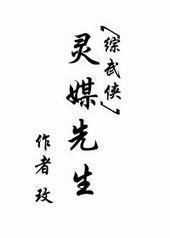 [综武侠]
灵媒先生
作者玫